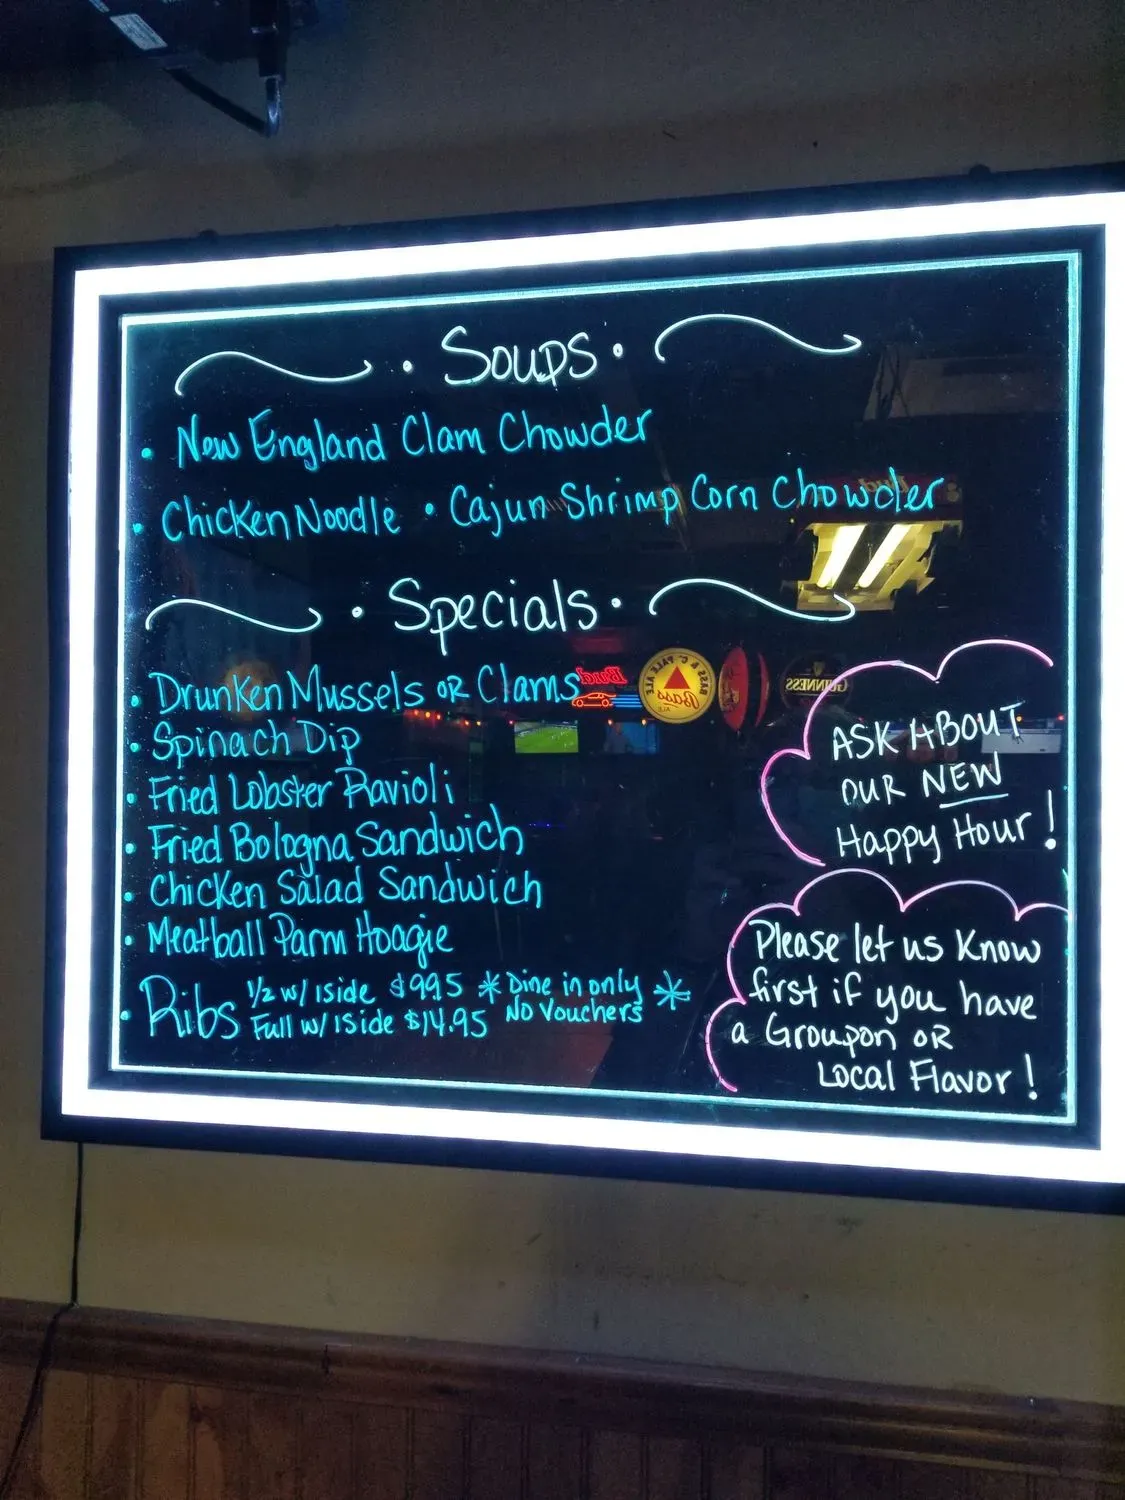 • Soups •
• New England Clam Chowder
• Chicken Noodle • Cajun Shrimp Corn Chowder
• Specials •
• Drunken Mussels OR Clams
• Spinach Dip
• Fried Lobster Ravioli
• Fried Bologna Sandwich
• Chicken Salad Sandwich
• Meatball Parm Hoagie
• Ribs 1/2 w/ 1side $9.95 * Dine in only *
Full w/ 1side $14.95 NO Vouchers
ASK ABOUT
OUR NEW
Happy Hour!
Please let us Know
first if you have
a Groupon OR
Local Flavor!
Bud
BASS & Co PALE ALE
Bass
ALE
GUINNESS